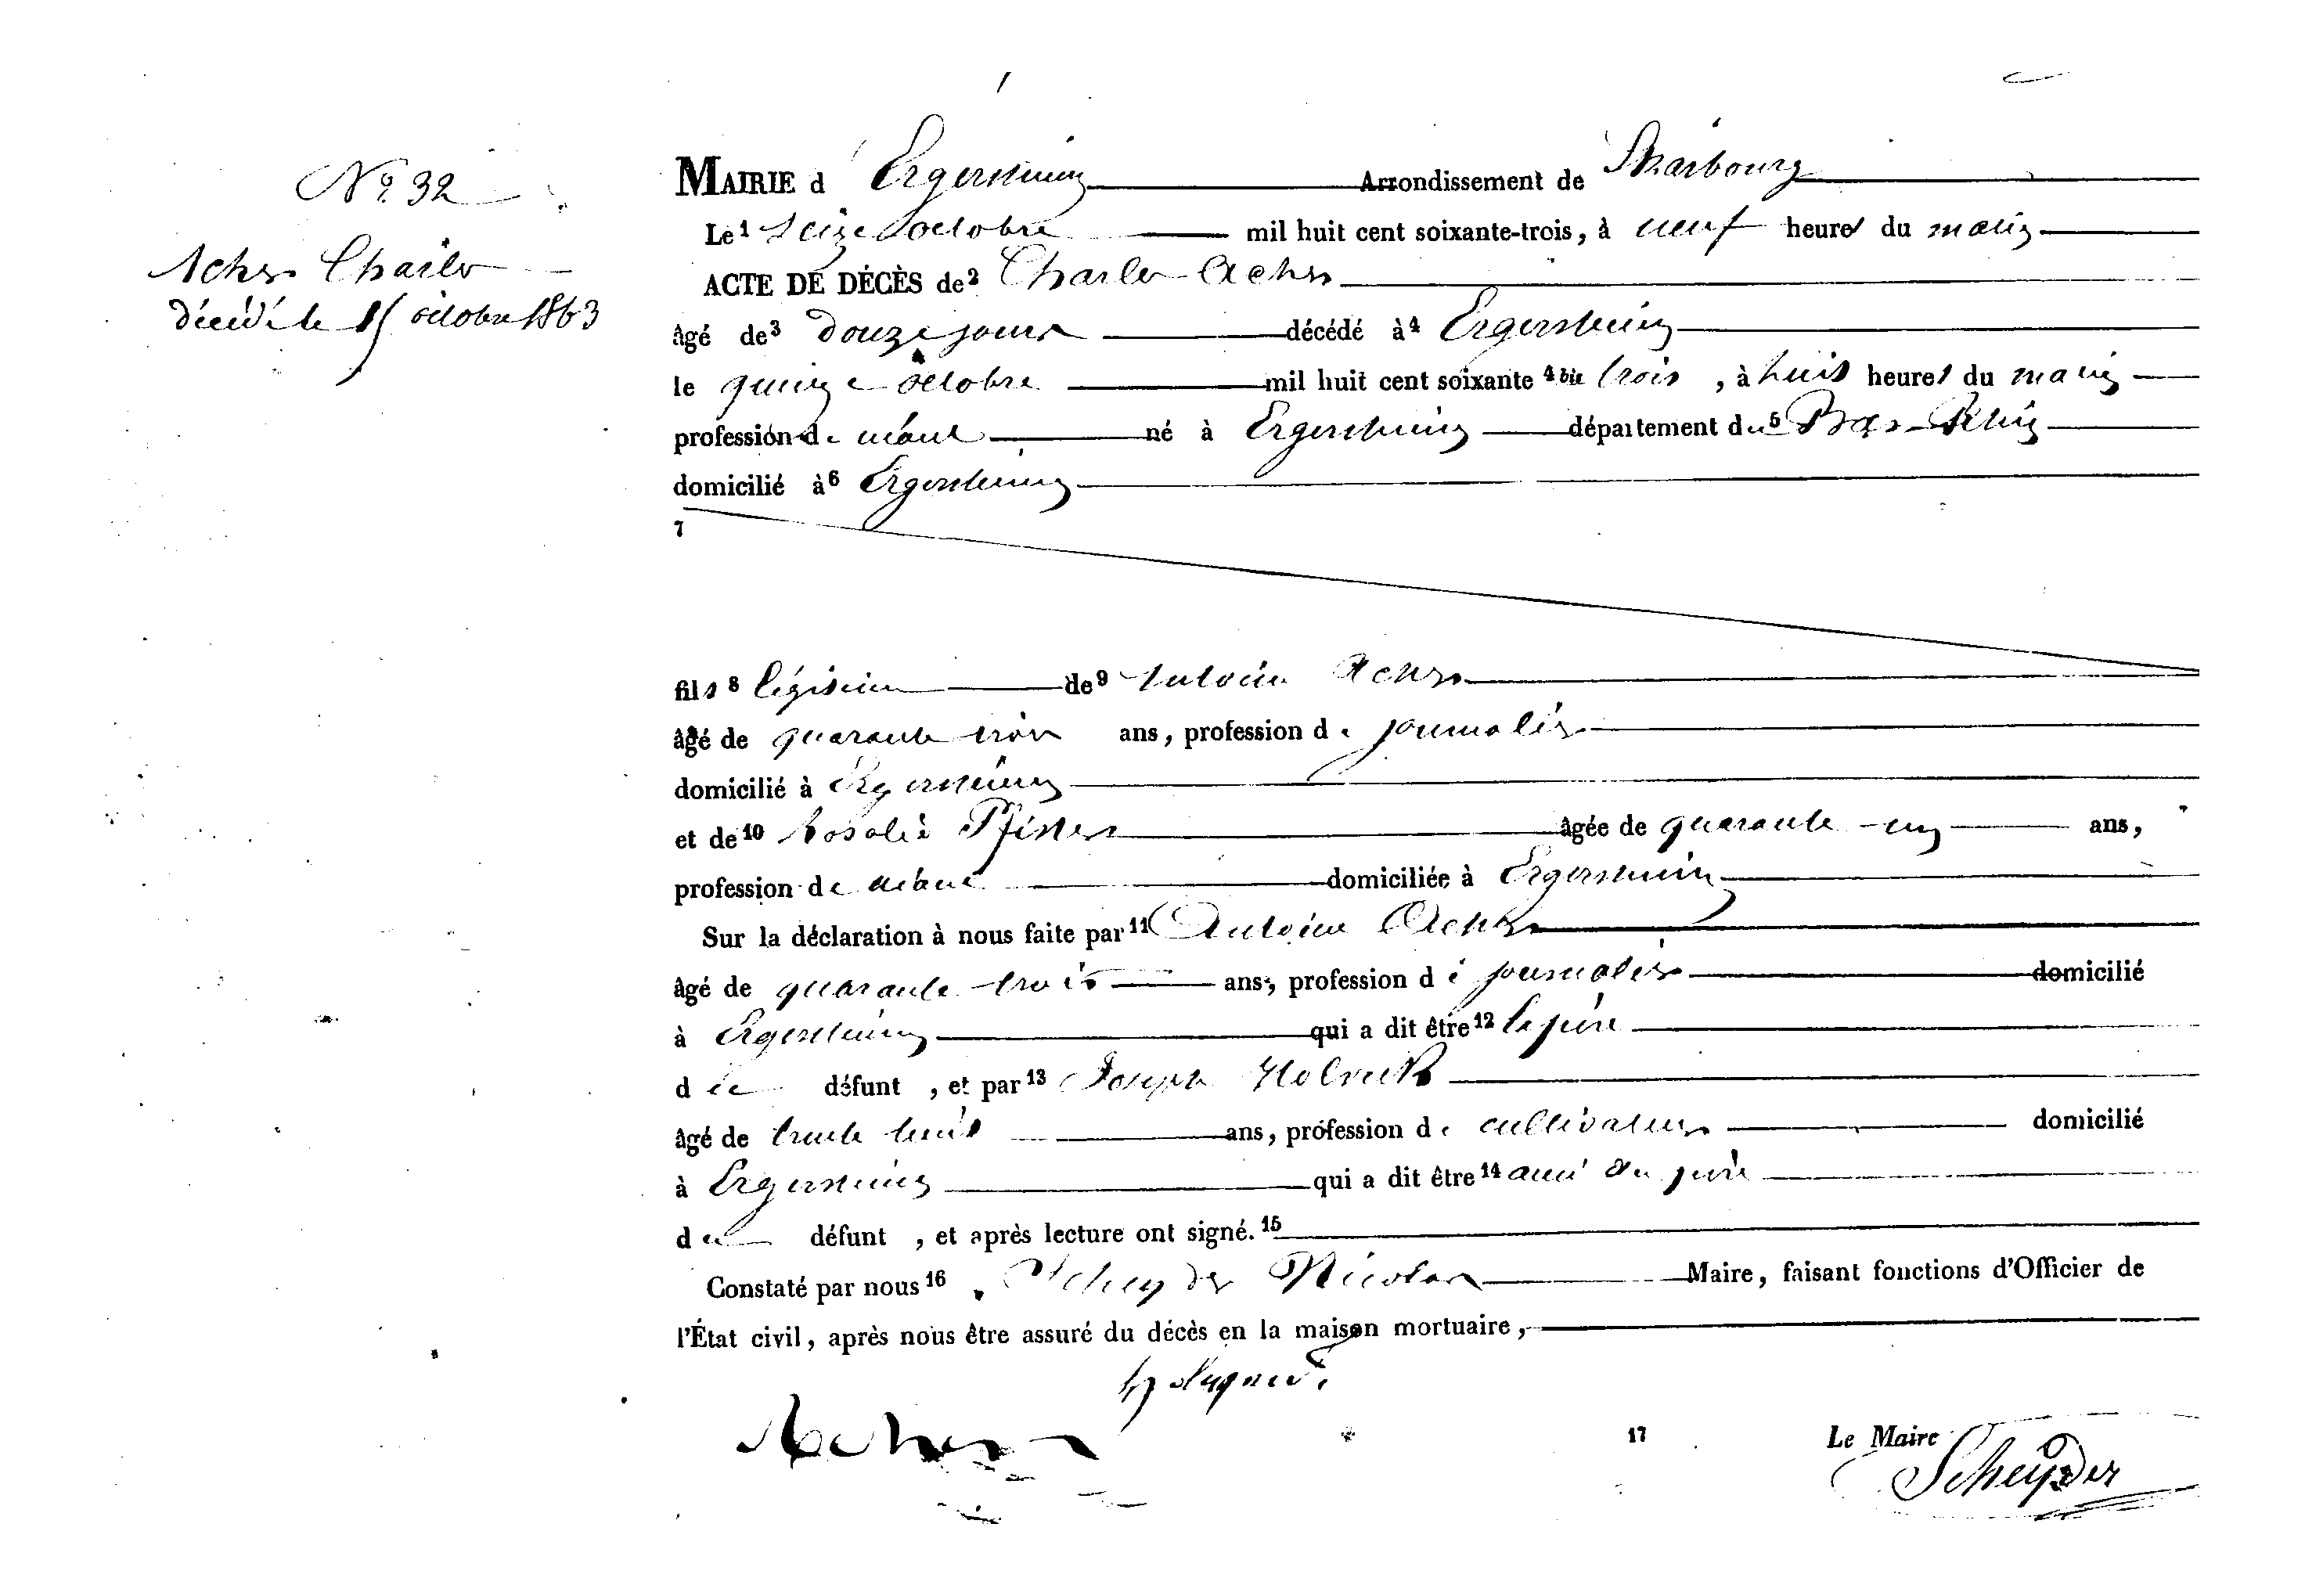 N° 32
Acher Charles
décédé le 15 octobre 1863
MAIRIE d' Ergersheim Arrondissement de Strasbourg
Le 1 seize octobre mil huit cent soixante-trois, à neuf heures du matin
ACTE DE DÉCÈS de 2 Charles Acher
âgé de 3 douze jours décédé à 4 Ergersheim
le quinze octobre mil huit cent soixante 4 bis trois, à huit heures du matin
profession de néant né à Ergersheim département du 5 Bas-Rhin
domicilié à 6 Ergersheim
7
fils 8 légitime de 9 Antoine Acher
âgé de quarante trois ans, profession de journalier
domicilié à Ergersheim
et de 10 Rosalie Pfister âgée de quarante-un ans,
profession de néant domiciliée à Ergersheim
Sur la déclaration à nous faite par 11 Antoine Acher
âgé de quarante trois ans, profession de journalier domicilié
à Ergersheim qui a dit être 12 le père
du défunt, et par 13 Joseph
âgé de trente huit ans, profession de cultivateur domicilié
à Ergersheim qui a dit être 14 ami du père
du défunt, et après lecture ont signé. 15
Constaté par nous 16 Scheyder Nicolas Maire, faisant fonctions d'Officier de
l'État civil, après nous être assuré du décès en la maison mortuaire,
Acher
17 Le Maire
Scheyder